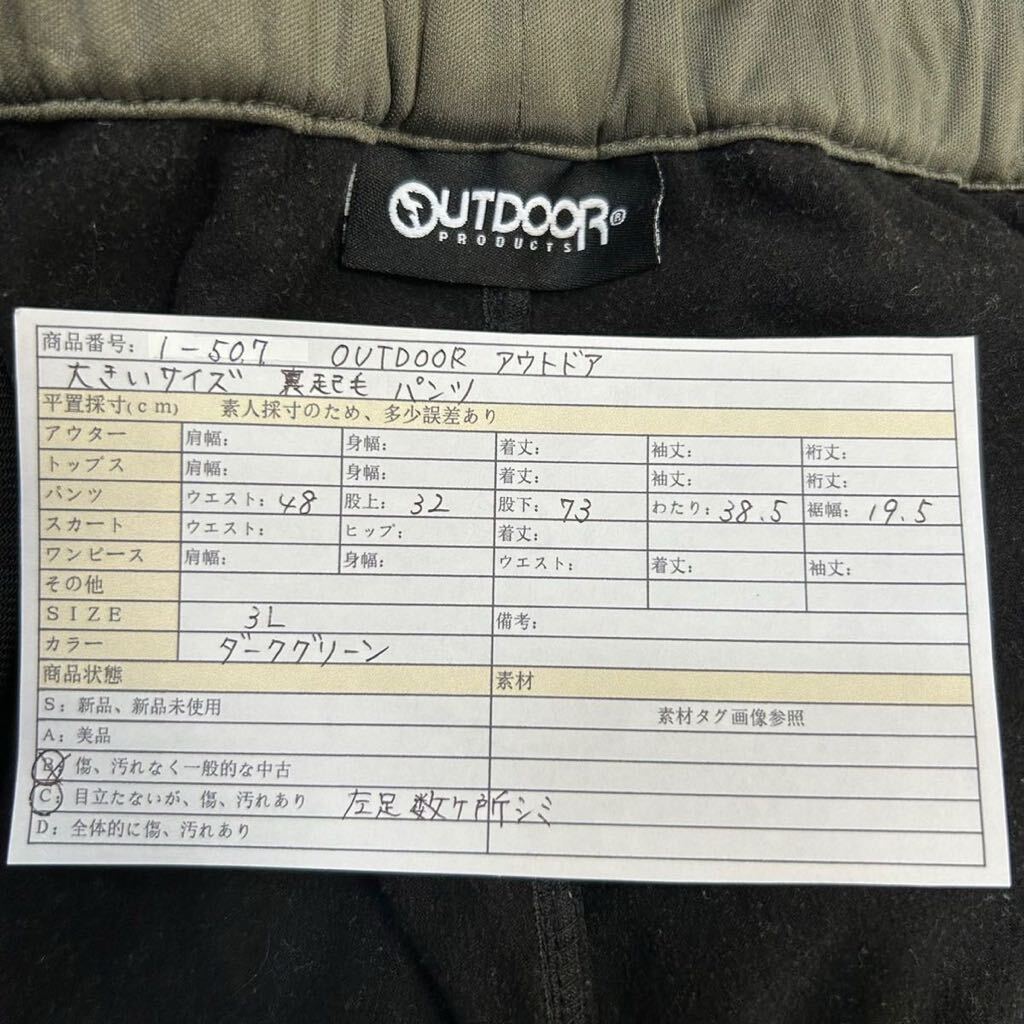 OUTDOOR®
PRODUCTS
商品番号: 1-507 OUTDOOR アウトドア
大きいサイズ 裏起毛 パンツ
平置採寸(cm) 素人採寸のため、多少誤差あり
アウター 肩幅: 身幅: 着丈: 袖丈: 裄丈:
トップス 肩幅: 身幅: 着丈: 袖丈: 裄丈:
パンツ ウエスト: 48 股上: 32 股下: 73 わたり: 38.5 裾幅: 19.5
スカート ウエスト: ヒップ: 着丈:
ワンピース 肩幅: 身幅: ウエスト: 着丈: 袖丈:
その他
SIZE 3L 備考:
カラー ダークグリーン
商品状態 素材
S: 新品、新品未使用 素材タグ画像参照
A: 美品
B: 傷、汚れなく一般的な中古
C: 目立たないが、傷、汚れあり 左足数ヶ所シミ
D: 全体的に傷、汚れあり